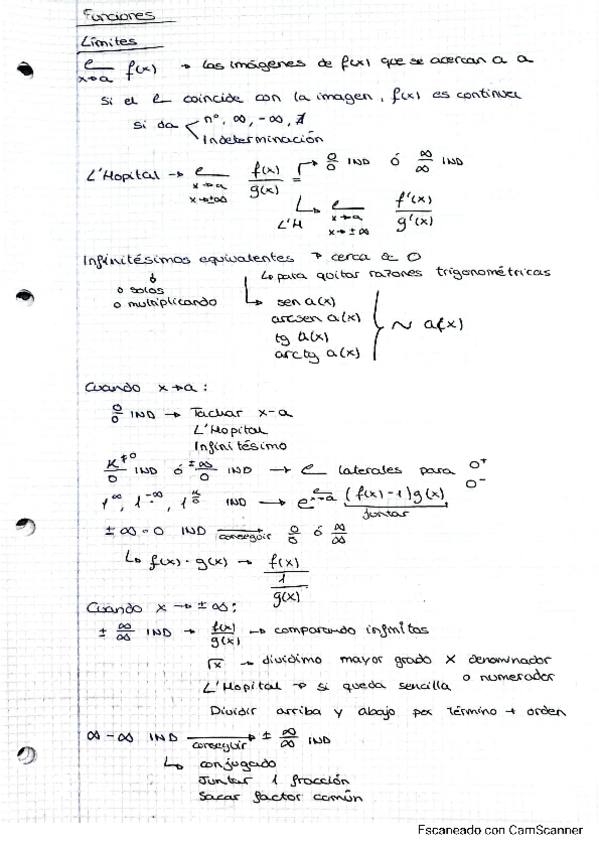 Funciones
Límites
ℓ x→a f(x) → Las imágenes de f(x) que se acercan a a
Si el ℓ coincide con la imagen, f(x) es continua
Si da < nº, ∞, -∞, ∄
Indeterminación
L'Hopital → ℓ x→a x→±∞ f(x)/g(x) = 0/0 IND ó ∞/∞ IND
L'H ℓ x→a x→±∞ f'(x)/g'(x)
Infinitésimos equivalentes → cerca a 0
o solos
o multiplicando
↳ para quitar razones trigonométricas
sen a(x)
arcsen a(x)
tg a(x)
arctg a(x)
~ a(x)
Cuando x→a:
0/0 IND → Tachar x-a
L'Hopital
Infinitésimo
K≠0/0 IND ó ±∞/0 IND → ℓ laterales para 0⁺ 0⁻
IND → e^ℓ x→a (f(x)-1)g(x)
juntar
±∞·0 IND → conseguir 0/0 ó ∞/∞
↳ f(x)·g(x) → f(x) / 1/g(x)
Cuando x→±∞:
± ∞/∞ IND → f(x)/g(x) → comparando infinitos
√x → dividimo mayor grado x denominador
o numerador
L'Hopital → si queda sencilla
Dividir arriba y abajo por término + orden
∞-∞ IND → conseguir ± ∞/∞ IND
↳ conjugado
Juntar 1 fracción
Sacar factor común
Escaneado con CamScanner